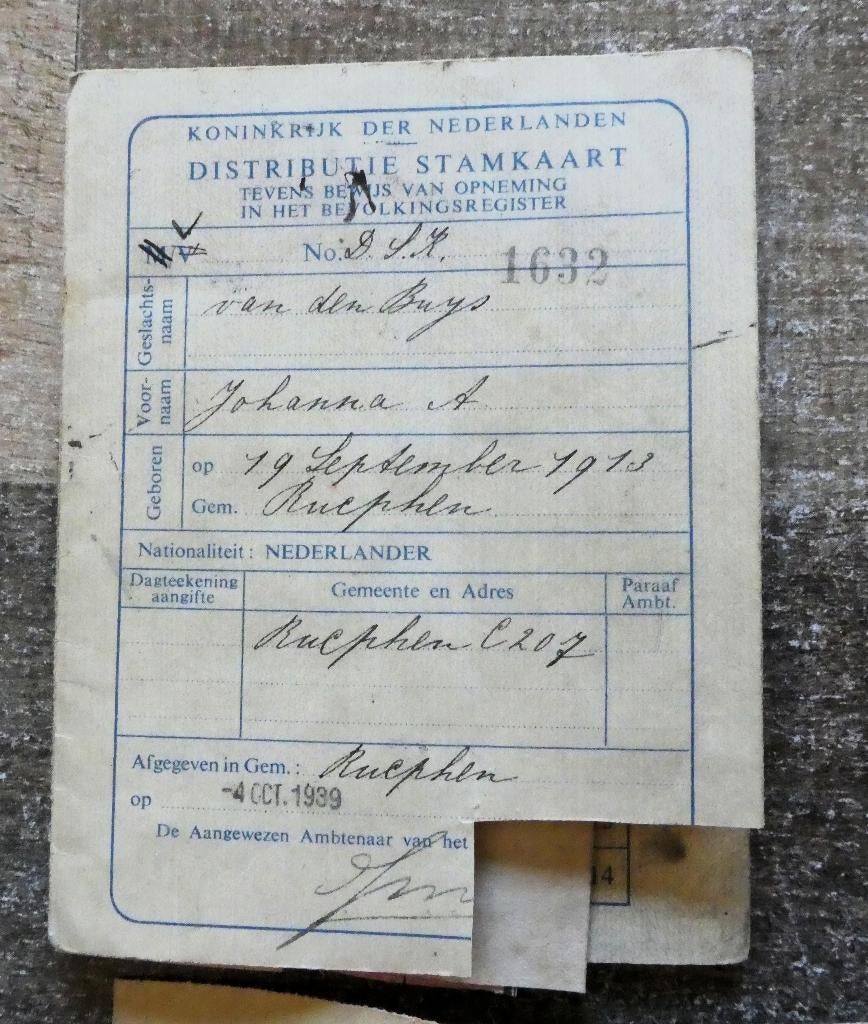 KONINKRIJK DER NEDERLANDEN
DISTRIBUTIE STAMKAART
TEVENS BEWIJS VAN OPNEMING
IN HET BEVOLKINGSREGISTER
V No: D. S. K. 1632
Geslachts-
naam
van den Buys
Voor-
naam
Johanna A
Geboren
op 19 September 1913
Gem. Rucphen
Nationaliteit: NEDERLANDER
Dagteekening
aangifte
Gemeente en Adres
Paraaf
Ambt.
Rucphen C 207
Afgegeven in Gem.: Rucphen
op -4 OCT. 1939
De Aangewezen Ambtenaar van het
14